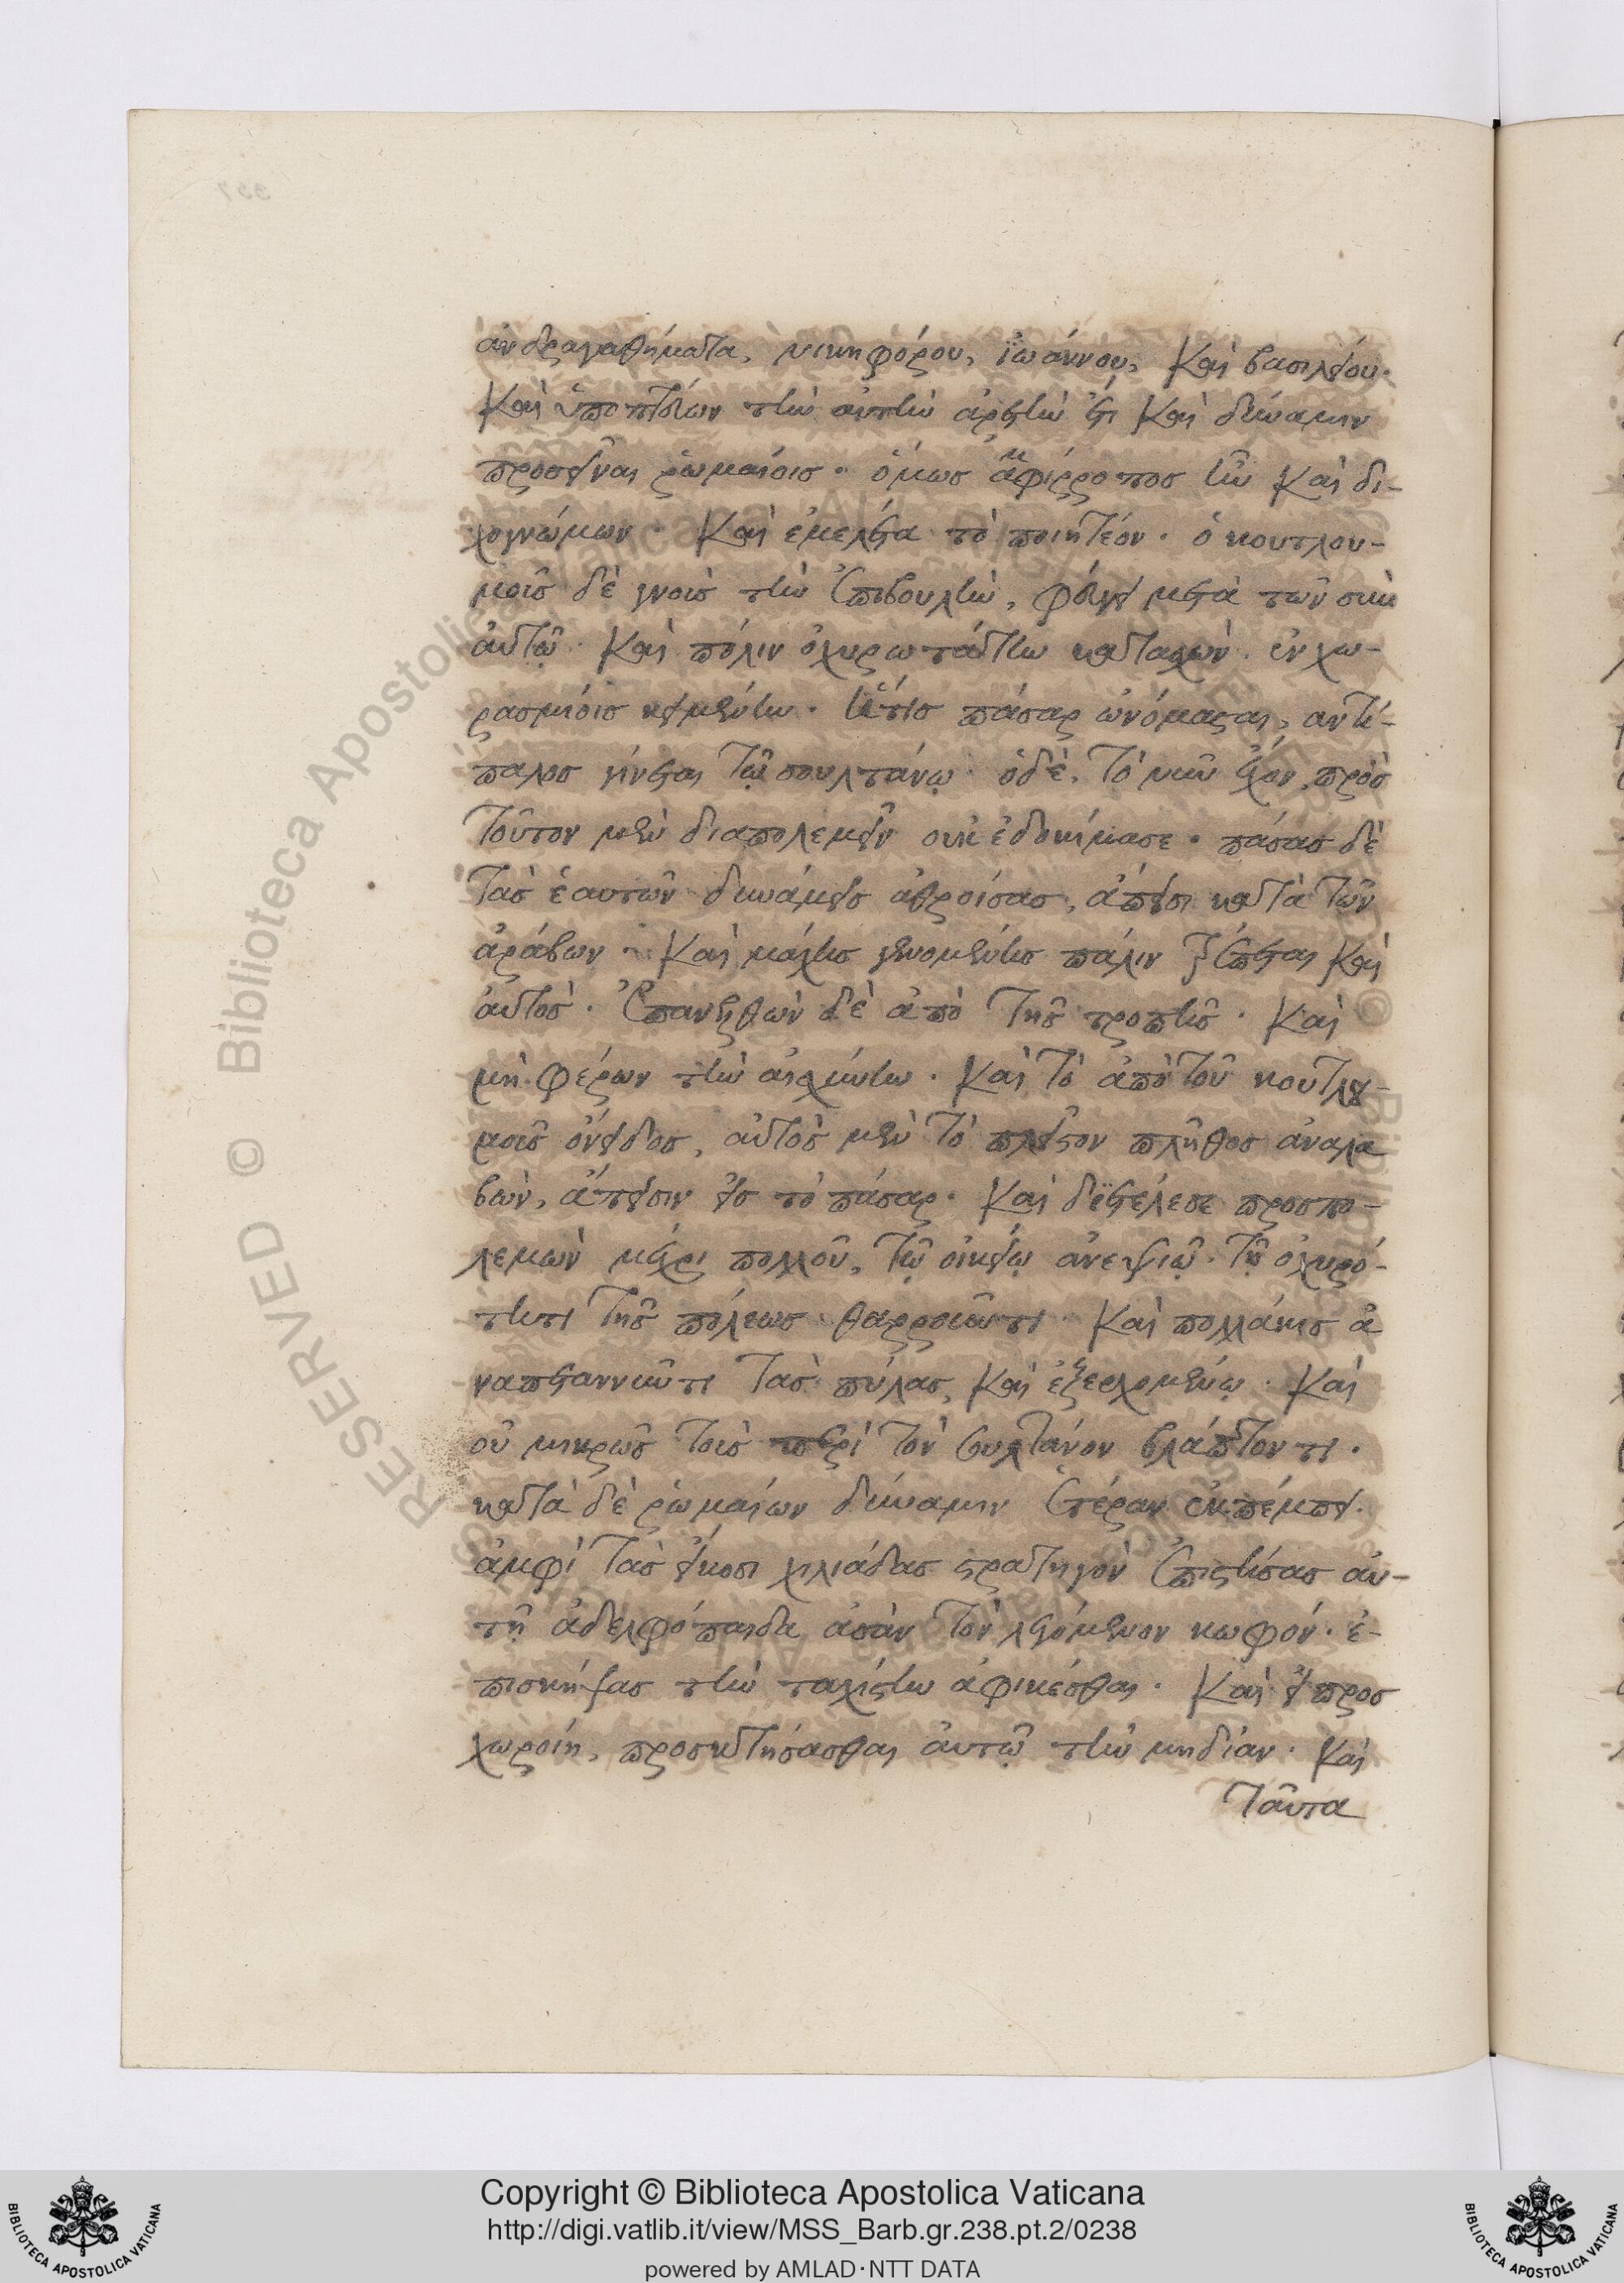 ἀνδραγαθήματα, νικηφόρου, ἰωάννου, καὶ βασιλείου.
καὶ ὑποπτεύων τὴν αὐτὴν ἀρετὴν ἔτι καὶ δύναμιν
προσεῖναι ῥωμαίοις. ὅμως ἀμφίρροπος ἦν καὶ δι-
χογνώμων. καὶ ἐμελέτα τὸ ποιητέον. ὁ κουτλου-
μοῦς δὲ γνοὺς τὴν ἐπιβουλὴν, φεύγει μετὰ τῶν σὺν
αὐτῷ. καὶ πόλιν ὀχυρωτάτην κατασχὼν. ἐν χω-
ρασμίοις κειμένην. ἥτις πάσαρ ὠνόμασται, αντί-
παλος γίνεται τῷ σουλτάνῳ. ὁ δὲ, τὸ νῦν ἔχον, πρὸς
τοῦτον μὲν διαπολεμεῖν ουκ ἐδοκίμασε. πάσας δὲ
τὰς ἑαυτῶν δυνάμεις ἀθροίσας, ἄπεισι κατὰ τῶν
ἀράβων. καὶ μάχης γενομένης πάλιν τρέπεται καὶ
αὐτὸς. ἐπανελθὼν δὲ ἀπὸ τῆς τροπῆς. καὶ
μὴ φέρων τὴν αἰσχύνην. καὶ τὸ ἀπὸ τοῦ κουτλου-
μοῦς ὄνειδος, αὐτὸς μὲν τὸ πλεῖστον πλῆθος ἀναλα
βὼν, ἄπεισιν εἰς τὸ πάσαρ. καὶ διετέλεσε προσπο-
λεμῶν μέχρι πολλοῦ, τῷ οἰκείῳ ἀνεψιῷ. τῇ ὀχυρό-
τητι τῆς πόλεως θαρροῦντι. καὶ πολλάκις ἀ
ναπεταννῦντι τὰς πύλας, καὶ ἐξερχομένῳ. καὶ
οὐ μικρῶς τοὺς περὶ τὸν σουλτάνον βλάπτοντι.
κατὰ δὲ ῥωμαίων δύναμιν ἑτέραν ἐκπέμπει.
ἀμφὶ τὰς εἴκοσι χιλιάδας στρατηγὸν ἐπιστήσας αὐ-
τῇ ἀδελφόπαιδα ἀσὰν τὸν λεγόμενον κωφόν. ἐ-
πισκήψας τὴν ταχίστην ἀφικέσθαι. καὶ εἰ προσ
χωροίη, προσκτήσασθαι αὐτῷ τὴν μηδίαν. καὶ
ταῦτα
Copyright © Biblioteca Apostolica Vaticana
http://digi.vatlib.it/view/MSS_Barb.gr.238.pt.2/0238
powered by AMLAD·NTT DATA